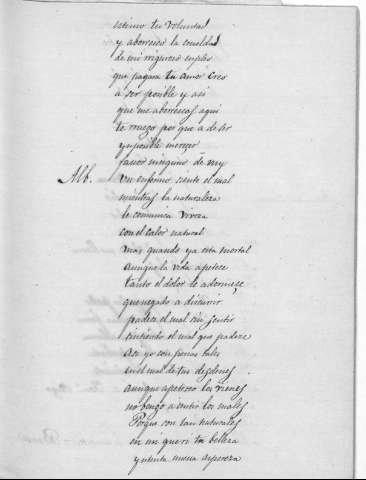 estimo tu voluntad
y aborresco la crueldad
de mi riguroso empleo
que pagara tu amor creo
a ser posible y asi
que me aborrescas aqui
te ruego por que a de ser
ynposible mereçer
favor ninguno de my
Alb. Un enfermo siente el mal
mientras la naturaleza
le comunica viveza
con el calor natural
mas quando ya esta mortal
aunque la vida apetece
tanto el dolor le adormeçe
que negado a discurrir
padece el mal sin sentir
sintiendo el mal que padece
Asi yo con penas tales
en el mal de tus desdenes
aunque apetezco los vienes
no bengo a sentir los males
Porque son tan naturales
en un
belleza
y tanta aspereza